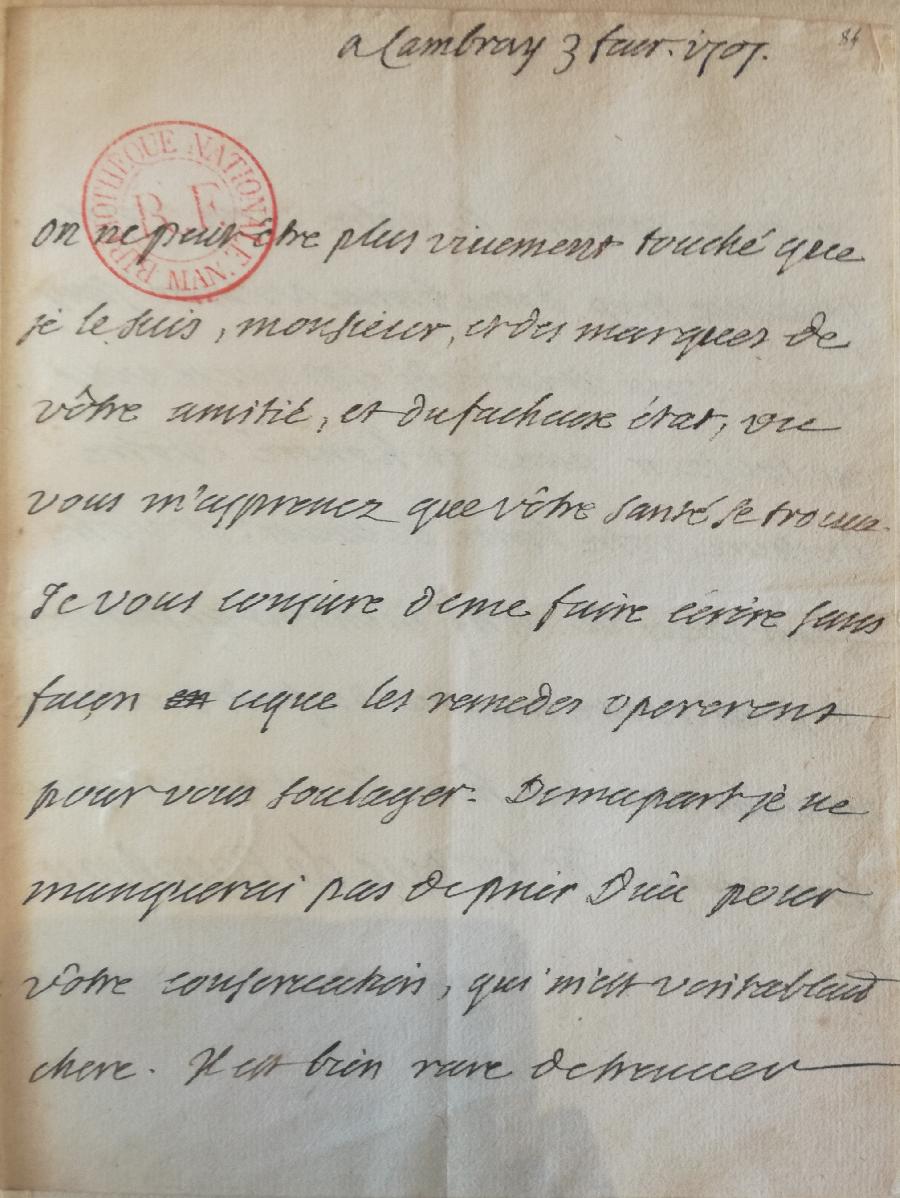 a Cambray 3 fevr. 1707.
84
BIBLIOTHEQUE NATIONALE MAN.
B F
on ne peut être plus vivement touché que
je le suis, monsieur, et des marques de
vôtre amitié, et du facheux état, ou
vous m'apprenez que vôtre santé se trouve.
Je vous conjure de me faire écrire sans
façon ce que les remedes opereront
pour vous soulager. De ma part je ne
manquerai pas de prier Dieu pour
vôtre conservation, qui m'est veritablemt
chere. Il est bien rare de trouver